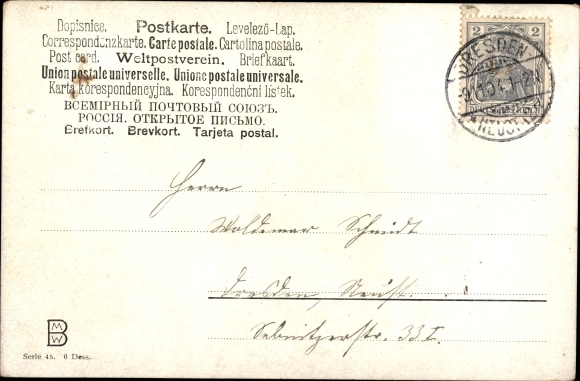 Dopisnice. Postkarte. Levelező-Lap.
Correspondenzkarte. Carte postale. Cartolina postale.
Post card. Weltpostverein. Briefkaart.
Union postale universelle. Unione postale universale.
Karta korespondencyjna. Korespondenční lístek.
ВСЕМІРНЫЙ ПОЧТОВЫЙ СОЮЗЪ.
РОССІЯ. ОТКРЫТОЕ ПИСЬМО.
Brefkort. Brevkort. Tarjeta postal.
2 2
DRESDEN
Herrn
Woldemar Schmidt
Dresden, Neust.
Sebnitzerstr. 33 I.
M
B
W
Serie 45. 6 Dess.